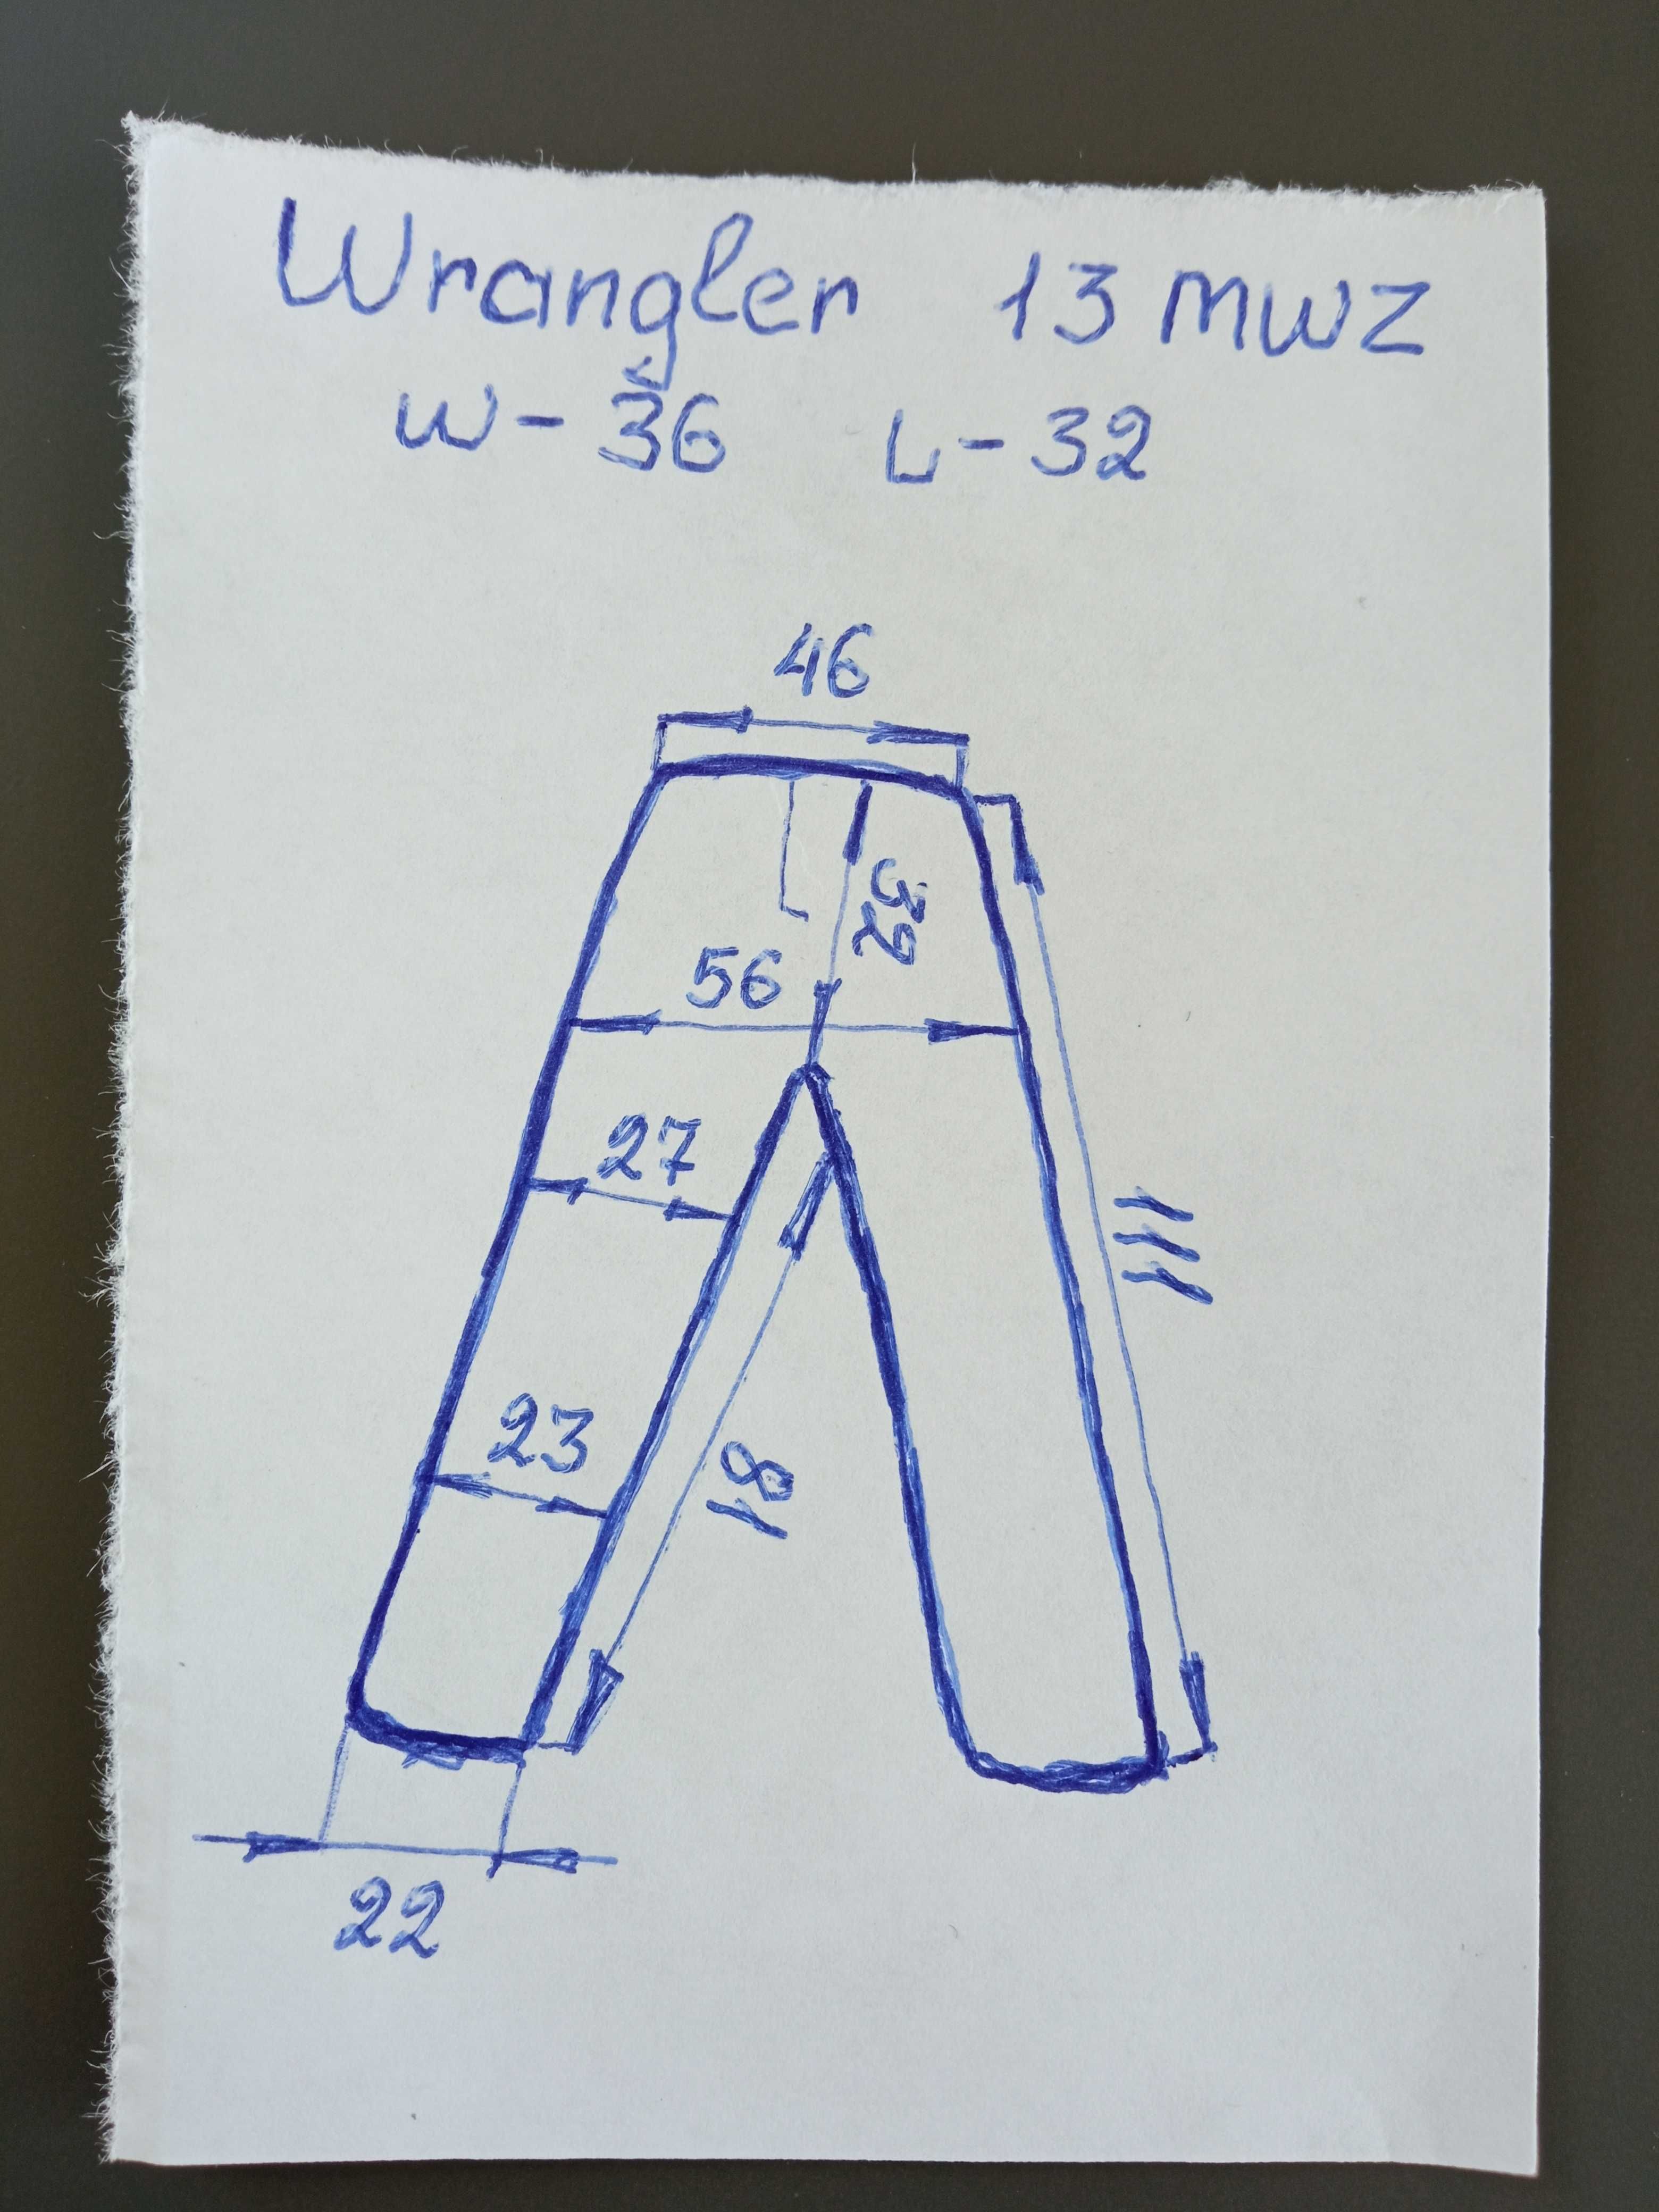 Wrangler 13 MWZ
W - 36 L - 32
46
32
56
27
111
23
81
22